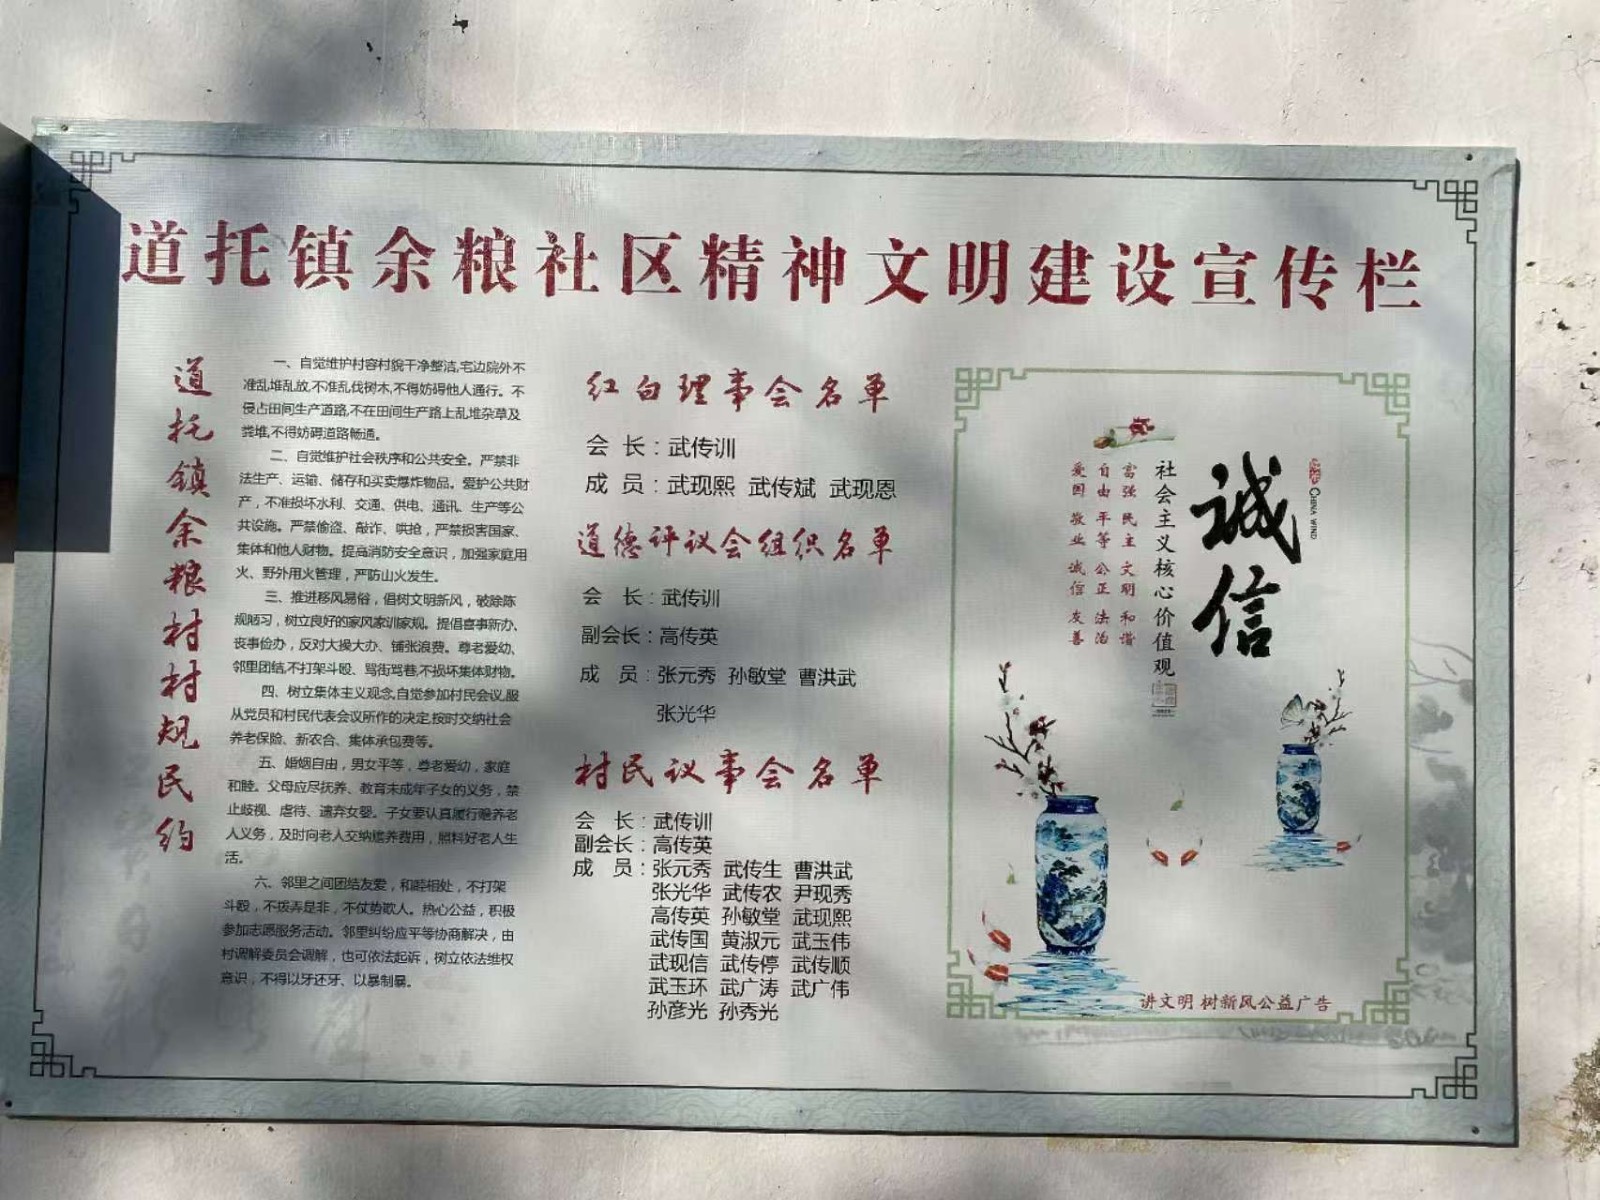 道托镇余粮社区精神文明建设宣传栏
道托镇余粮村村规民约
一、自觉维护村容村貌干净整洁,宅边院外不
准乱堆乱放,不准乱伐树木,不得妨碍他人通行。不
侵占田间生产道路,不在田间生产路上乱堆杂草及
粪堆,不得妨碍道路畅通。
二、自觉维护社会秩序和公共安全。严禁非
法生产、运输、储存和买卖爆炸物品。爱护公共财
产，不准损坏水利、交通、供电、通讯、生产等公
共设施。严禁偷盗、敲诈、哄抢，严禁损害国家、
集体和他人财物。提高消防安全意识，加强家庭用
火、野外用火管理，严防山火发生。
三、推进移风易俗，倡树文明新风，破除陈
规陋习，树立良好的家风家训家规。提倡喜事新办、
丧事俭办，反对大操大办、铺张浪费。尊老爱幼、
邻里团结,不打架斗殴、骂街骂巷,不损坏集体财物。
四、树立集体主义观念,自觉参加村民会议,服
从党员和村民代表会议所作的决定,按时交纳社会
养老保险、新农合、集体承包费等。
五、婚姻自由，男女平等，尊老爱幼，家庭
和睦。父母应尽抚养、教育未成年子女的义务，禁
止歧视、虐待、遗弃女婴。子女要认真履行赡养老
人义务，及时向老人交纳赡养费用，照料好老人生
活。
六、邻里之间团结友爱，和睦相处，不打架
斗殴，不拨弄是非，不仗势欺人。热心公益，积极
参加志愿服务活动。邻里纠纷应平等协商解决，由
村调解委员会调解，也可依法起诉，树立依法维权
意识，不得以牙还牙、以暴制暴。
红白理事会名单
会 长：武传训
成 员：武现熙 武传斌 武现恩
道德评议会组织名单
会 长：武传训
副会长：高传英
成 员：张元秀 孙敏堂 曹洪武
张光华
村民议事会名单
会 长：武传训
副会长：高传英
成 员：张元秀 武传生 曹洪武
张光华 武传农 尹现秀
高传英 孙敏堂 武现熙
武传国 黄淑元 武玉伟
武现信 武传停 武传顺
武玉环 武广涛 武广伟
孙彦光 孙秀光
诚信
CHINA WIND
社会主义核心价值观
富强 民主 文明 和谐
自由 平等 公正 法治
爱国 敬业 诚信 友善
讲文明 树新风公益广告